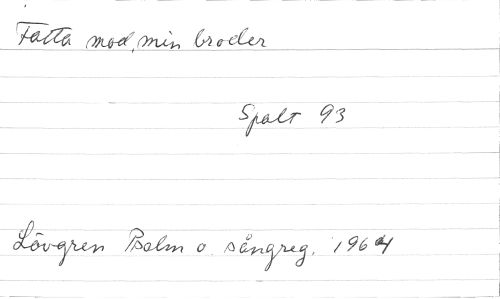 Fatta mod, min broder
Spalt 93
Lövgren Psalm o. sångreg. 1964